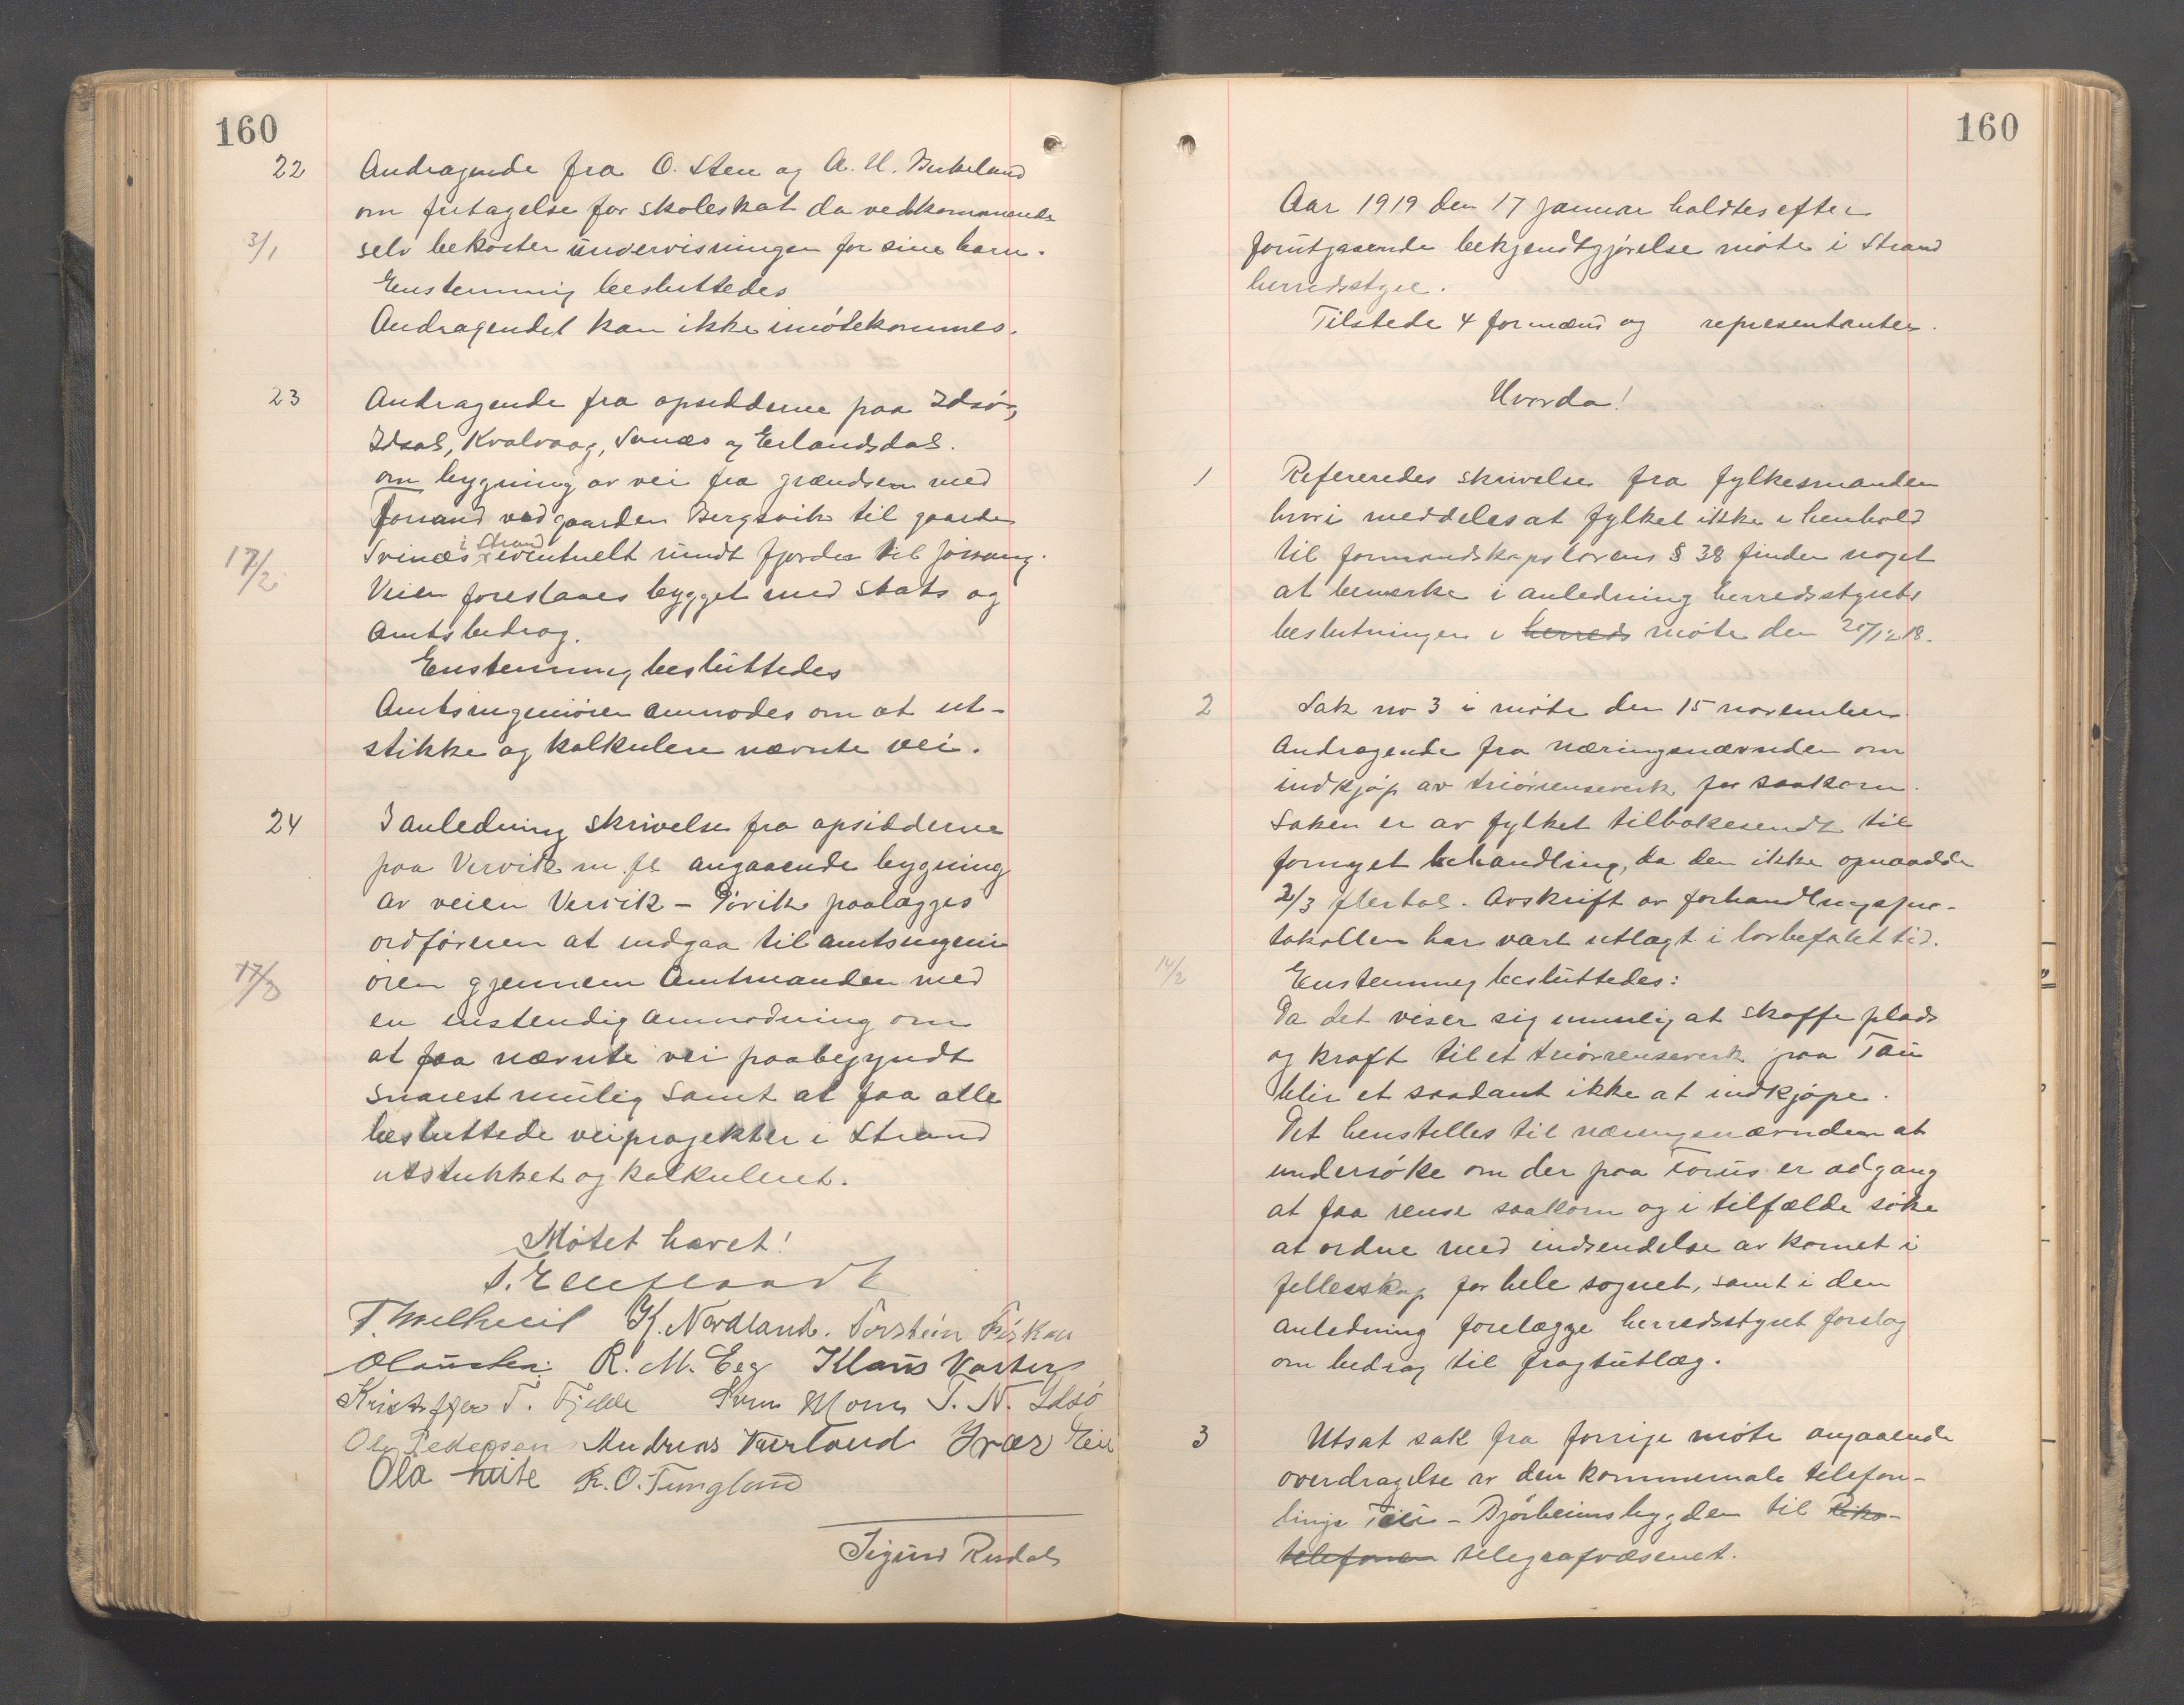 160
22 Andragende fra O. Sten og A. H. Birkeland
om fritagelse for skoleskat da vedkommende
3/1 selv bekoster undervisningen for sine barn.
Enstemmig besluttedes
Andragendet kan ikke imøtekommes.
23 Andragende fra opsidderne paa Idsø,
Idsal, Kvalvaag, Svnæs og Erlandsdal.
om bygning av vei fra grændsen med
Forsand ved gaarden Bergsvik til gaarden
17/2 Svinæs i Strand eventuelt rundt fjorden til Jøssang.
Veien foreslaaes bygget med stats og
Amtsbidrag.
Enstemmig besluttedes
Amtsingeniøren anmodes om at ut-
stikke og kalkulere nævnte vei.
24 I anledning skrivelse fra opsidderne
paa Vervik m. fl. angaaende bygning
av veien Vervik - Pørvik paalægges
ordføreren at indgaa til amtsingeni
17/3 øren gjennem Amtmanden med
en instendig anmodning om
at faa nævnte vei paabegyndt
snarest mulig samt at faa alle
besluttede veiprojekter i Strand
utstukket og kalkulert.
Møtet hævet!
K. Nordland. Torstein Fiskaa
R. M. Eeg Klaus Vasteg
Kristoffer T. Fjelde Sven Moen T. N. Idsø
Ole Pedersen Andreas Ivar
Ola R. O. Tungland
Sigurd Risdal
160
Aar 1919 den 17 januar holdtes efter
forutgaaende bekjendtgjørelse møte i Strand
herredsstyre.
Tilstede 4 formænd og representanter.
Hvorda!
1 Refereredes skrivelse fra fylkesmanden
hvori meddeles at fylket ikke i henhold
til formandskapslovens § 38 finder noget
at bemerke i anledning herredsstyrets
beslutninger i herreds møte den 20/12 18.
2 Sak no 3 i møte den 15 november
Andragende fra næringsnævnden om
indkjøp av triørrenseverk for saakorn.
Saken er av fylket tilbakesendt til
fornyet behandling, da den ikke opnaadde
2/3 flertal. Avskrift av forhandlingspro-
tokollen har vært utlagt i lovbefalet tid.
14/2 Enstemmig besluttedes:
Da det viser sig umulig at skaffe plads
og kraft til et triørrenseverk paa Tau
blir et saadant ikke at indkjøpe.
Det henstilles til næringsnævnden at
undersøke om der paa Forus er adgang
at faa rense saakorn og i tilfælde søke
at ordne med indsendelse av kornet i
fellesskap for hele sognet, samt i den
anledning forelægge herredsstyret forslag
om bidrag til fragtutlæg.
3 Utsat sak fra forrige møte angaaende
overdragelse av den kommunale telefon-
linje Tau - Bjørheimsbygden til Riks-
telefonen telegrafvæsenet.